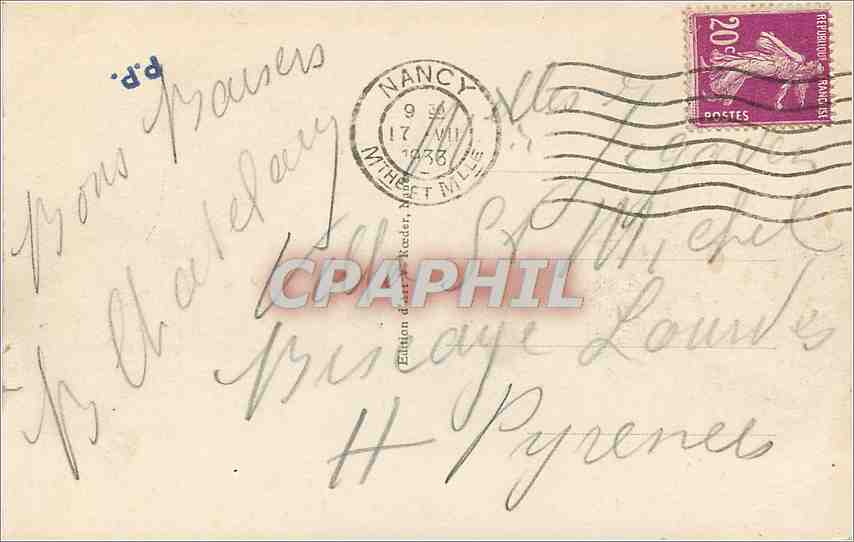 P.P.
Bons Baisers
B Chatelain
NANCY
9 30
17 VII
1933
MTHE ET MLLE
20c
REPUBLIQUE FRANÇAISE
POSTES
Melles
Villa St Michel
Biscaye Lourdes
H Pyrenees
Edition d'art Roeder, Nancy
CPAPHIL